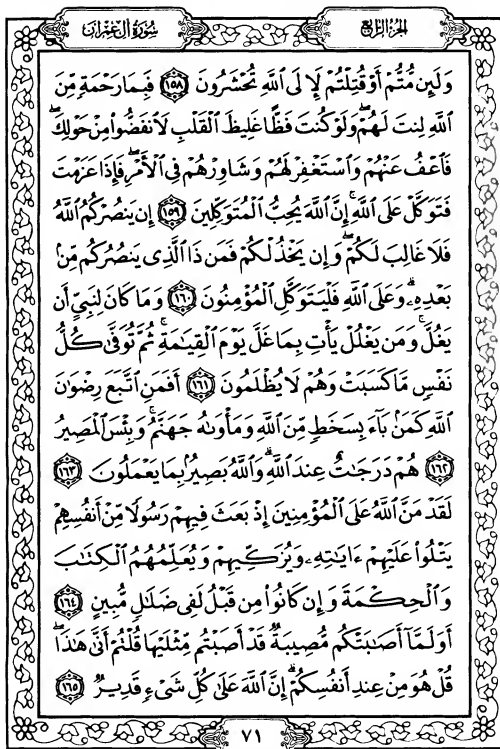 الجزء الرابع
سورة آل عمران
وَلَئِن مُّتُّمْ أَوْ قُتِلْتُمْ لَإِلَى ٱللَّهِ تُحْشَرُونَ ﴿١٥٨﴾ فَبِمَا رَحْمَةٍ مِّنَ
ٱللَّهِ لِنتَ لَهُمْ ۖ وَلَوْ كُنتَ فَظًّا غَلِيظَ ٱلْقَلْبِ لَٱنفَضُّوا۟ مِنْ حَوْلِكَ ۖ
فَٱعْفُ عَنْهُمْ وَٱسْتَغْفِرْ لَهُمْ وَشَاوِرْهُمْ فِى ٱلْأَمْرِ ۖ فَإِذَا عَزَمْتَ
فَتَوَكَّلْ عَلَى ٱللَّهِ ۚ إِنَّ ٱللَّهَ يُحِبُّ ٱلْمُتَوَكِّلِينَ ﴿١٥٩﴾ إِن يَنصُرْكُمُ ٱللَّهُ
فَلَا غَالِبَ لَكُمْ ۖ وَإِن يَخْذُلْكُمْ فَمَن ذَا ٱلَّذِى يَنصُرُكُم مِّنۢ
بَعْدِهِۦ ۗ وَعَلَى ٱللَّهِ فَلْيَتَوَكَّلِ ٱلْمُؤْمِنُونَ ﴿١٦٠﴾ وَمَا كَانَ لِنَبِىٍّ أَن
يَغُلَّ ۚ وَمَن يَغْلُلْ يَأْتِ بِمَا غَلَّ يَوْمَ ٱلْقِيَٰمَةِ ۚ ثُمَّ تُوَفَّىٰ كُلُّ
نَفْسٍ مَّا كَسَبَتْ وَهُمْ لَا يُظْلَمُونَ ﴿١٦١﴾ أَفَمَنِ ٱتَّبَعَ رِضْوَٰنَ
ٱللَّهِ كَمَنۢ بَآءَ بِسَخَطٍ مِّنَ ٱللَّهِ وَمَأْوَىٰهُ جَهَنَّمُ ۚ وَبِئْسَ ٱلْمَصِيرُ
﴿١٦٢﴾ هُمْ دَرَجَٰتٌ عِندَ ٱللَّهِ ۗ وَٱللَّهُ بَصِيرٌۢ بِمَا يَعْمَلُونَ ﴿١٦٣﴾
لَقَدْ مَنَّ ٱللَّهُ عَلَى ٱلْمُؤْمِنِينَ إِذْ بَعَثَ فِيهِمْ رَسُولًا مِّنْ أَنفُسِهِمْ
يَتْلُوا۟ عَلَيْهِمْ ءَايَٰتِهِۦ وَيُزَكِّيهِمْ وَيُعَلِّمُهُمُ ٱلْكِتَٰبَ
وَٱلْحِكْمَةَ وَإِن كَانُوا۟ مِن قَبْلُ لَفِى ضَلَٰلٍ مُّبِينٍ ﴿١٦٤﴾
أَوَلَمَّآ أَصَٰبَتْكُم مُّصِيبَةٌ قَدْ أَصَبْتُم مِّثْلَيْهَا قُلْتُمْ أَنَّىٰ هَٰذَا ۖ
قُلْ هُوَ مِنْ عِندِ أَنفُسِكُمْ ۗ إِنَّ ٱللَّهَ عَلَىٰ كُلِّ شَىْءٍ قَدِيرٌ ﴿١٦٥﴾
٧١